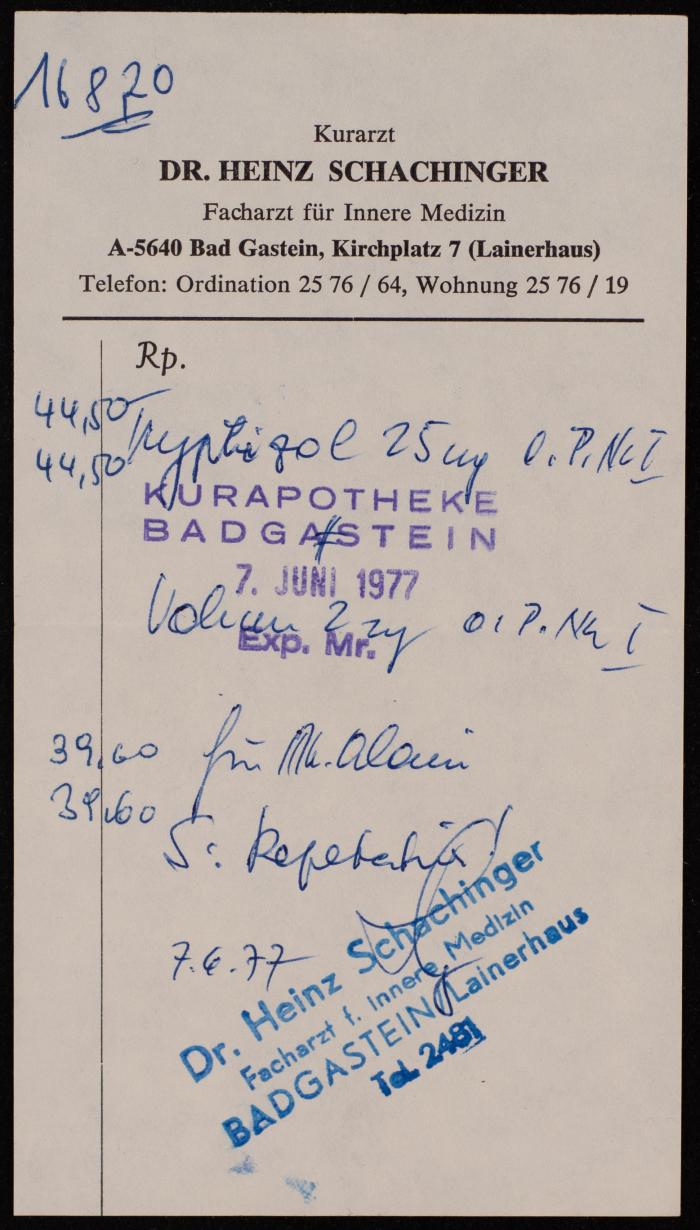 16820
Kurarzt
DR. HEINZ SCHACHINGER
Facharzt für Innere Medizin
A-5640 Bad Gastein, Kirchplatz 7 (Lainerhaus)
Telefon: Ordination 25 76 / 64, Wohnung 25 76 / 19
Rp.
44,50
44,50
Tryptizol 25mg O.P. No I
KURAPOTHEKE
BADGASTEIN
7. JUNI 1977
Valium 2 mg O.P. No I
Exp. Mr.
39,60
39,60
für Mr. Alain
S: Repetatur!
7.6.77
Dr. Heinz Schachinger
Facharzt f. Innere Medizin
BADGASTEIN, Lainerhaus
Tel. 2481